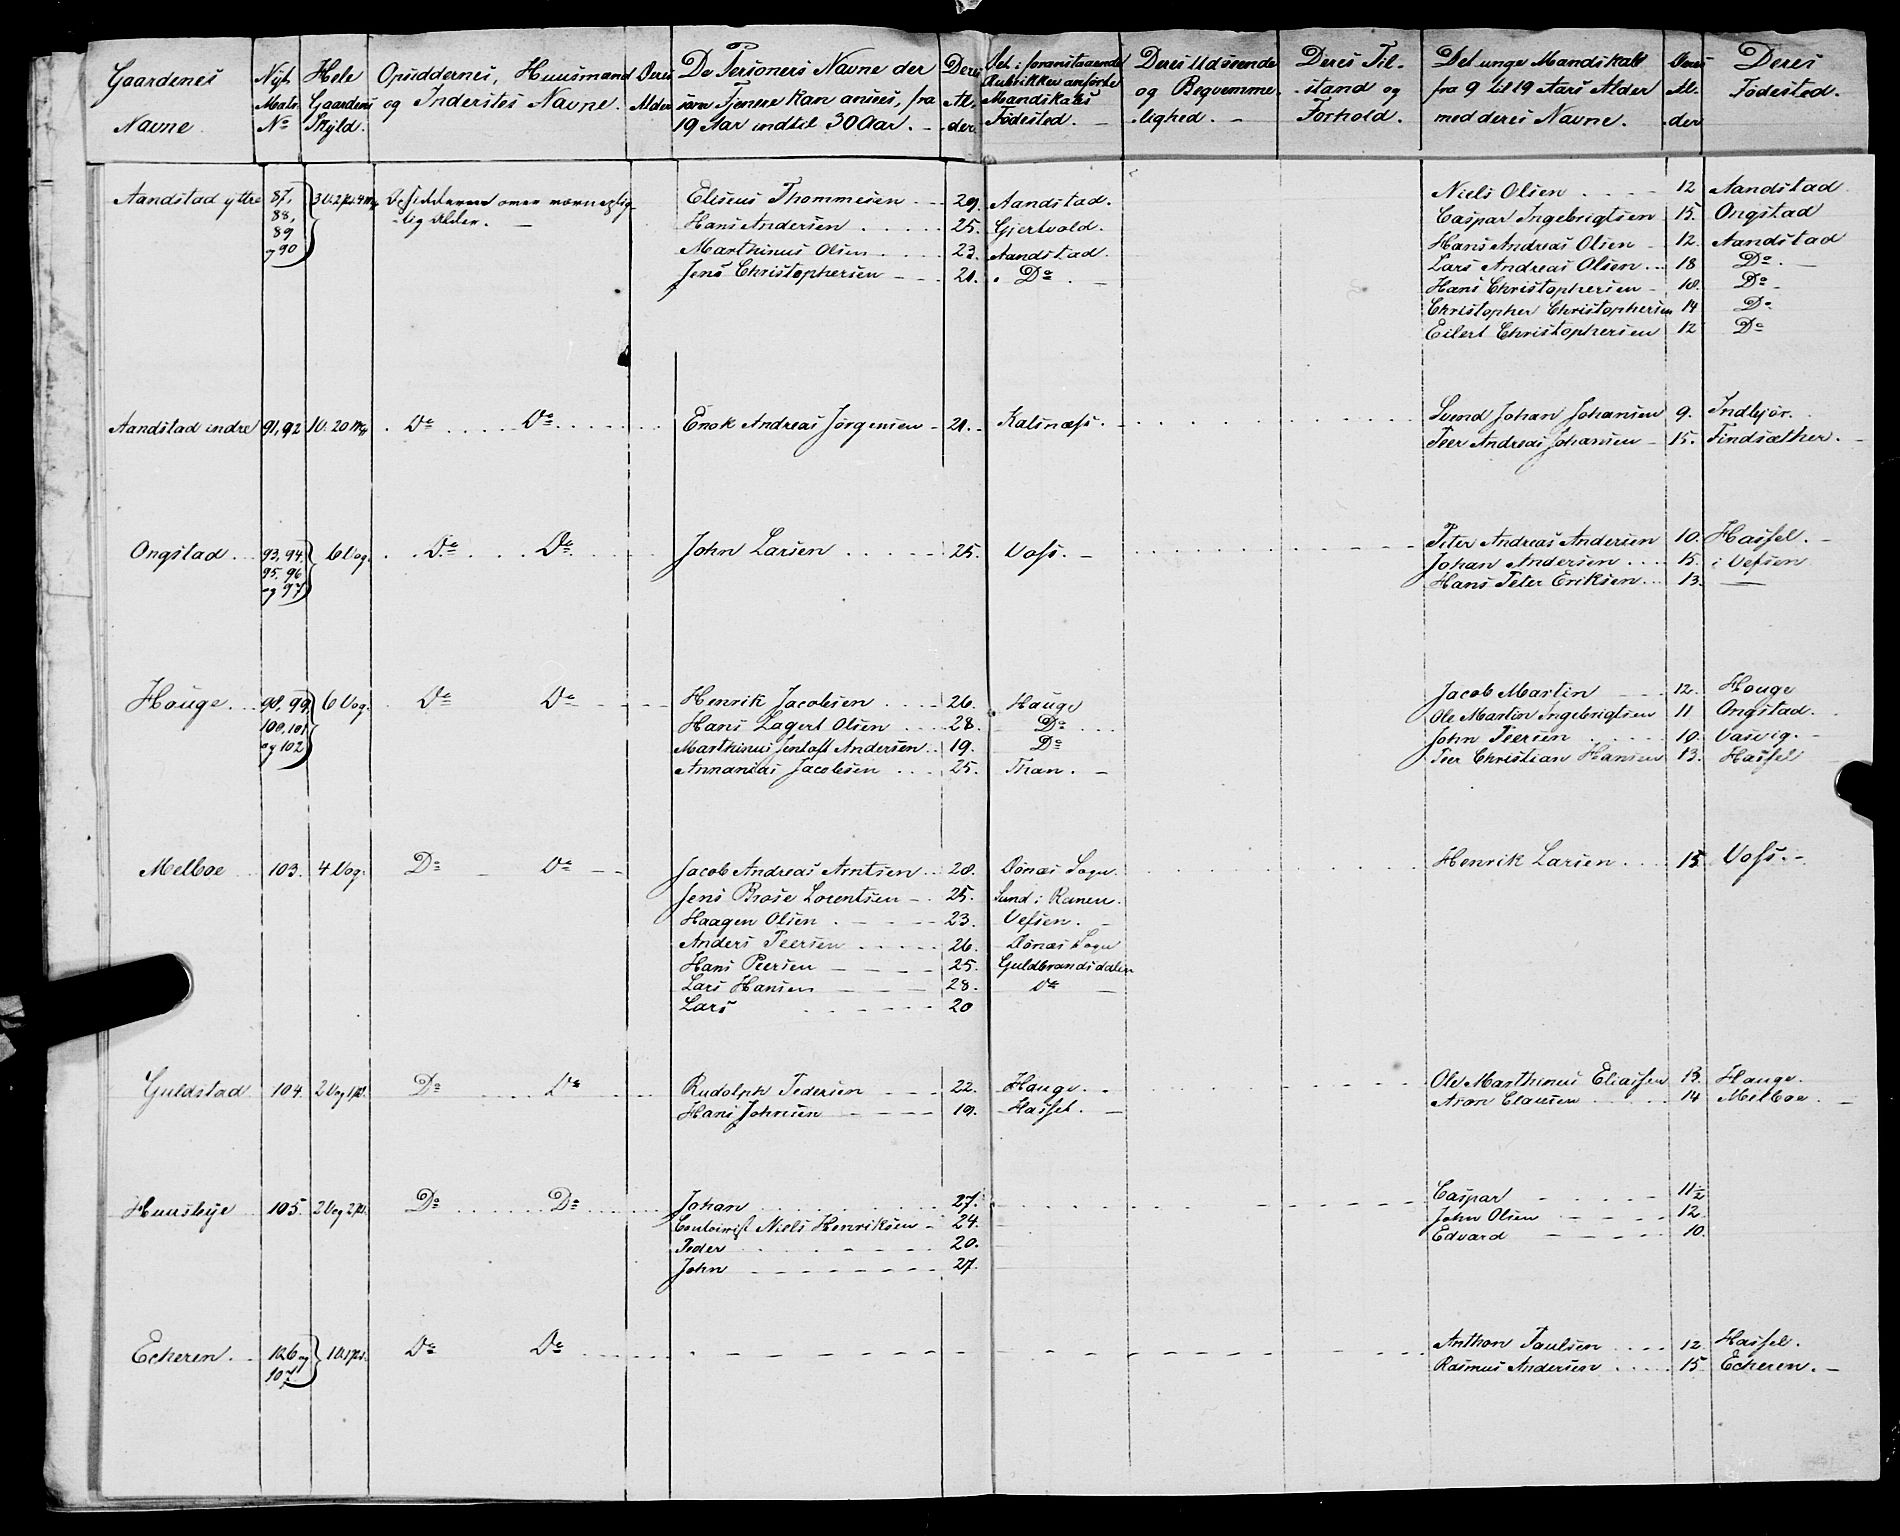 Gaardenes Navne.
Nyt Matr. No
Hele Gaardens Skyld.
Opsiddernes, Huusmænd og Inderstes Navne.
Deres Alder
De Personers Navne der som Tjenere kan ansees, fra 19 Aar indtil 30 Aar.
Deres Alder
Det i foranstaaende Rubrikker anførte Mandskabs Fødested.
Deres Udseende og Beqvemmelighed.
Deres Tilstand og Forhold.
Det unge Mandskab fra 9 til 19 Aars Alder med deres Navne.
Deres Alder
Deres Fødested.
Aandstad yttre 87, 88, 89 og 90
Eliseus Thommesen 29. Aandstad.
Hans Andersen 25. Gjertvold.
Marthinus Olsen 23. Aandstad
Jens Christophersen 21. Do
Niels Olsen 12 Aandstad
Caspar Ingebrigtsen 15. Ongstad
Hans Andreas Olsen 12. Aandstad
Lars Andreas Olsen 18 Do
Hans Christophersen 18. Do
Christopher Christophersen 14 Do
Eilert Christophersen 12 Do
Aandstad indre 91, 92 Do Do Enok Andreas Jörgensen 21. Kalsnæss.
Svend Johan Johansen 9. Indbjör.
Peer Andreas Johansen 15. Findsæther.
Ongstad 93, 94, 95, 96 og 97 6 Vog. Do Do John Larsen 25. Voss.
Peter Andreas Andersen 10. Hassel.
Johan Andersen 15. i Vefsen
Hans Peter Eriksen 13.
Houge 98, 99, 100, 101 og 102 6 Vog. Do Do
Henrik Jacobsen 26. Hauge
Hans Zagert Olsen 28. Do
Marthinus Jentoft Andersen 19. Do
Annanias Jacobsen 25. Than.
Jacob Martin 12. Houge
Ole Martin Ingebrigtsen 11 Ongstad.
John Peersen 10. Vasvig.
Peer Christian Hansen 13. Hassel
Melboe 103. 4 Vog. Do Do
Jacob Andreas Arntsen 28. Dönæs Sogn
Jens Brose Lorentsen 25. Sund i Ranen.
Haagen Olsen 23. Vefsen.
Anders Peersen 26. Dönæs Sogn
Hans Peersen 25. Guldbrandsdalen
Lars Hansen 28. Do
Lars 20
Henrik Larsen 15 Voss.
Guldstad 104. 2 Vog 1 pd. Do Do
Rudolph Pedersen 22. Hauge.
Hans Johnsen 19. Hassel.
Ole Marthinus Eliassen 13. Hauge.
Aron Clausen 14 Melboe.
Huusbye 105. 2 Vog 2 pd. Do Do
Johan 27.
Contoirist Niels Henriksen 24.
Peder 20.
John 27.
Caspar 11½
John Olsen 12.
Edvard 10.
Echeren 106 og 107. Do Do
Anthon Paulsen 12. Hassel.
Rasmus Andersen 15 Echeren.